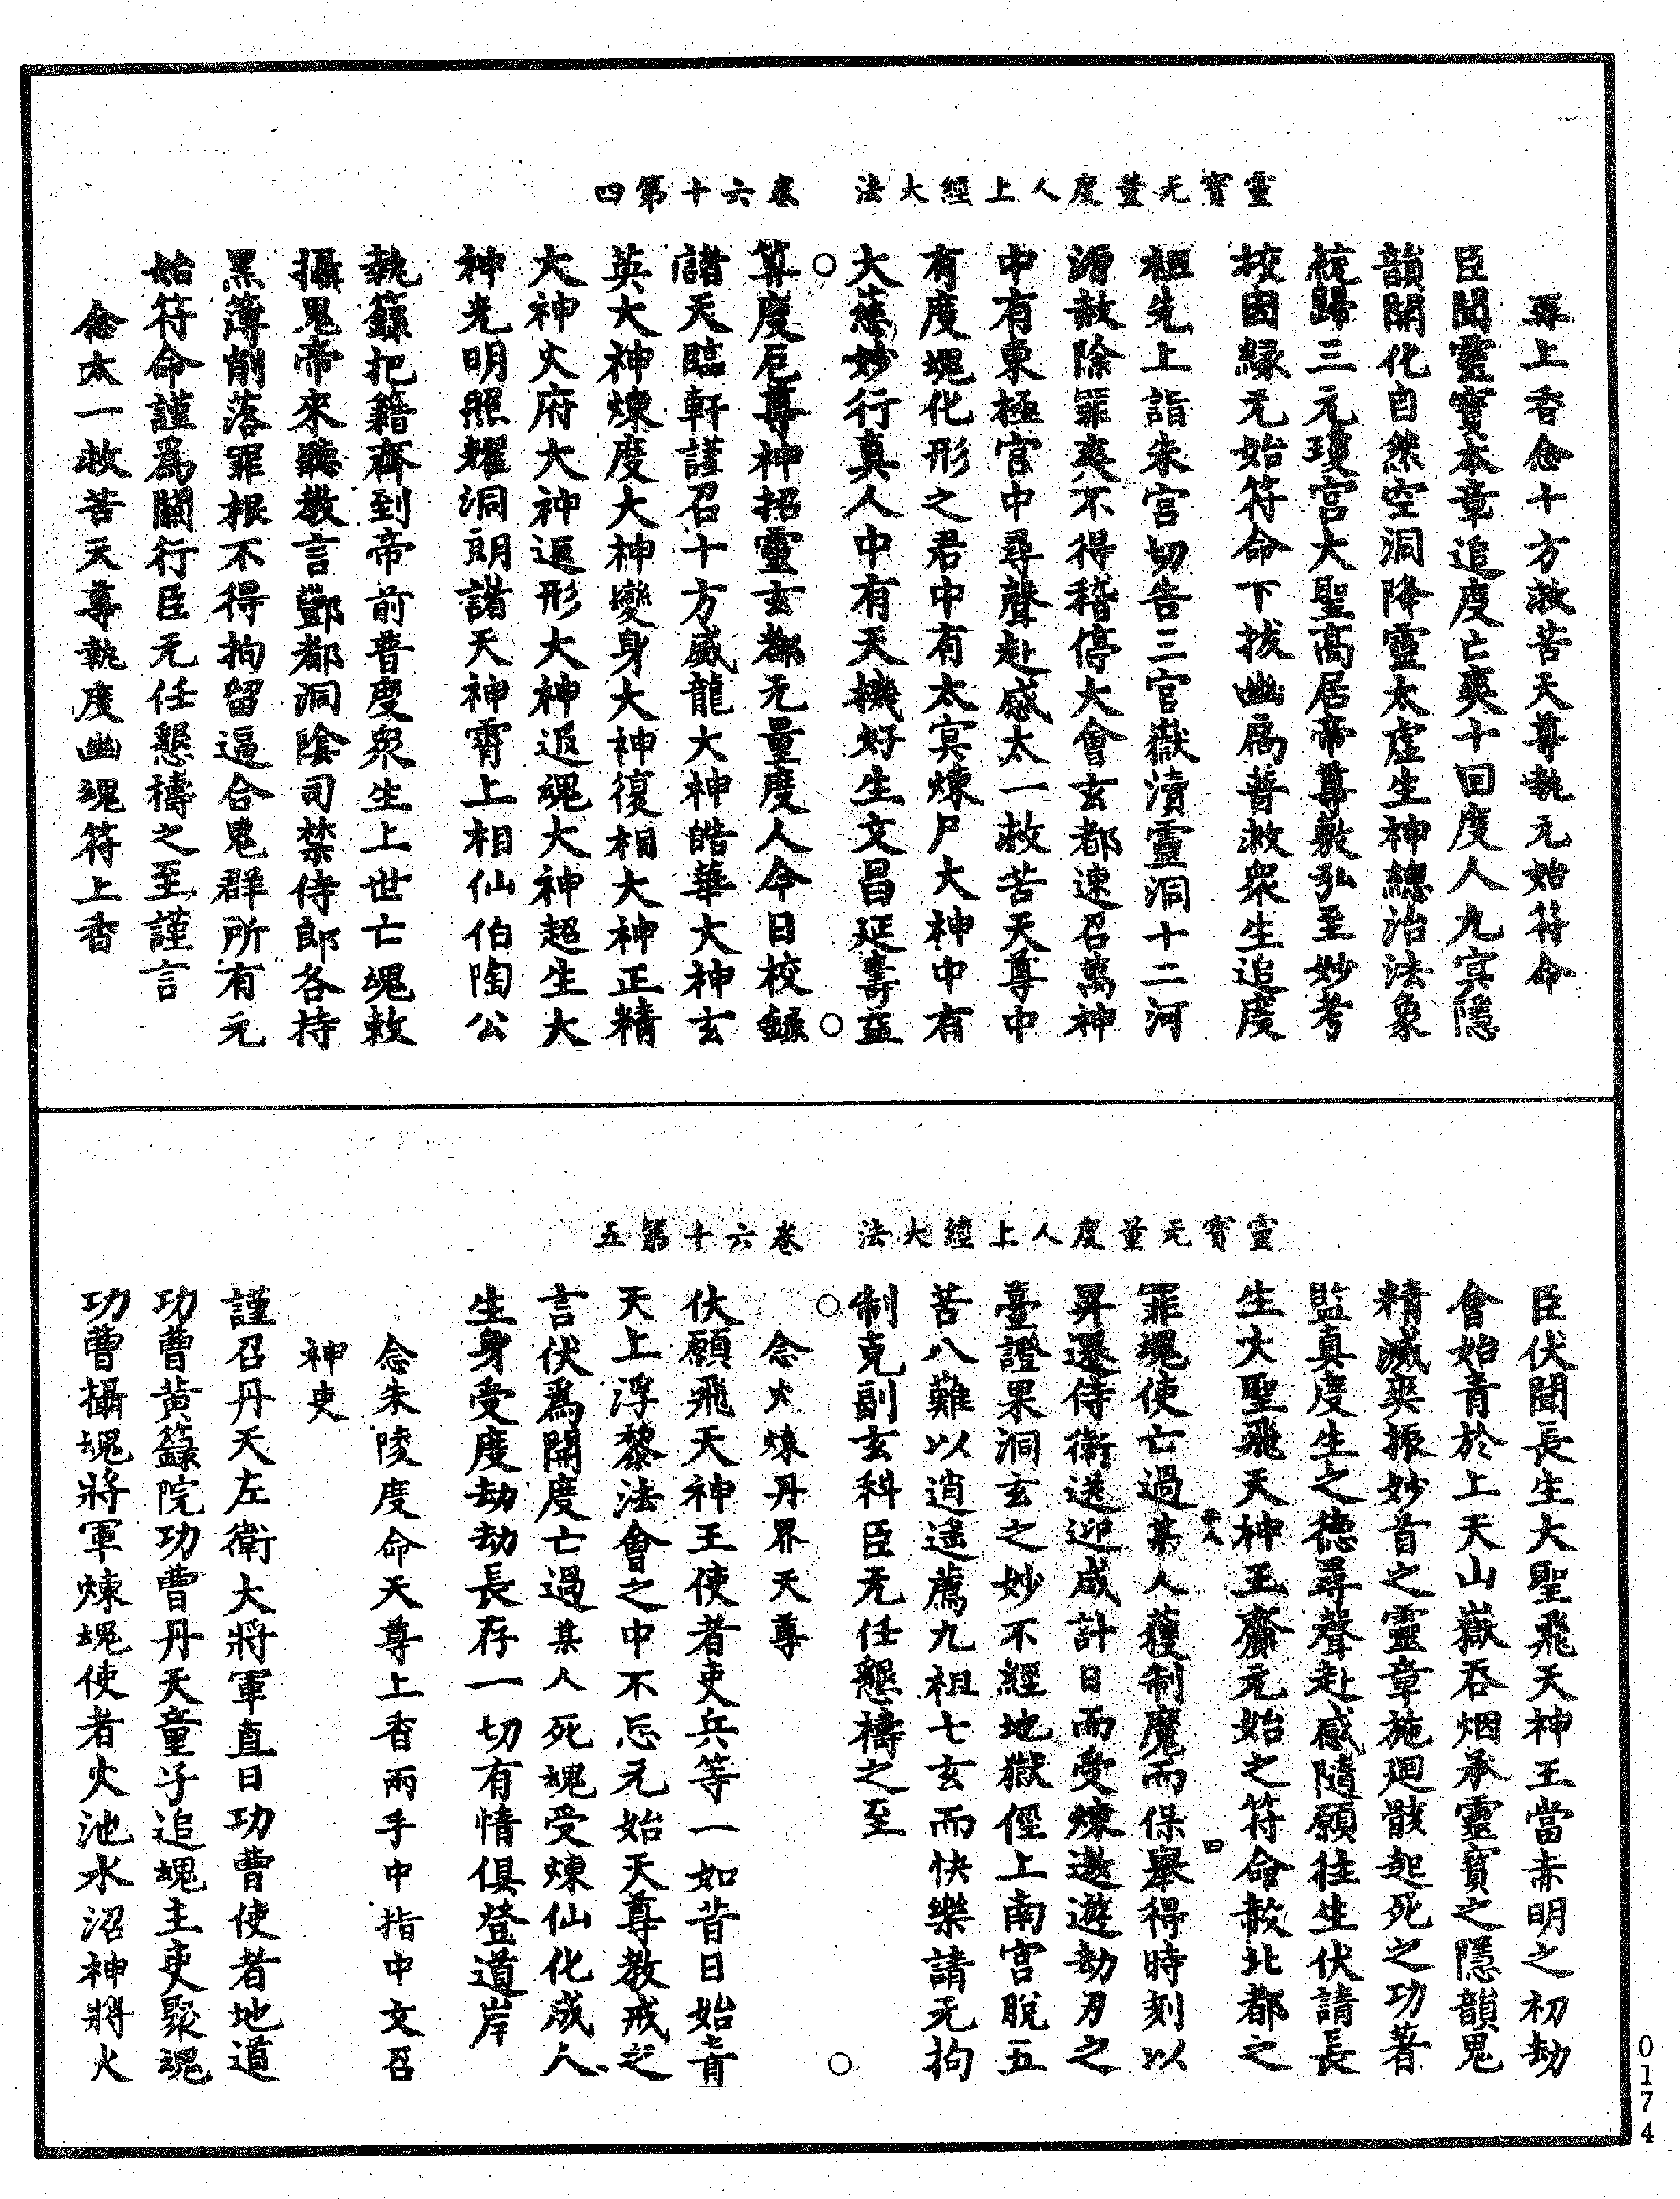 靈寶无量度人上經大法　卷六十第四
尋上香念十方救苦天尊執元始符命
臣聞靈寶本章追度亡爽十回度人九冥隱
韻開化自然空洞降靈太虛生神總治法象
統歸三元瓊宮大聖高居帝尊敷弘至妙考
校因緣无始符命下拔幽扃普救衆生追度
祖先上詣朱宮切告三官嶽瀆靈洞十二河
源赦除罪爽不得稽停大會玄都速召萬神
中有東極宮中尋聲赴感太一救苦天尊中
有度魂化形之君中有太冥煉尸大神中有
大慈妙行真人中有天機好生文昌延壽益
筭度厄尊神招靈玄都无量度人今日校錄
諸天臨軒謹召十方威龍大神皓華大神玄
英大神煉度大神變身大神復相大神正精
大神火府大神返形大神返魂大神超生大
神光明照耀洞朗諸天神霄上相仙伯陶公
執籙把籍齊到帝前普度衆生上世亡魂敕
攝鬼帝來聽教言酆都洞陰司禁侍郎各持
黑簿削落罪根不得拘留逼合鬼群所有元
始符命謹爲關行臣无任懇禱之至謹言
念太一救苦天尊執度幽魂符上香
靈寶无量度人上經大法　卷六十第五
臣伏聞長生大聖飛天神王當赤明之初劫
會始青於上天山嶽吞烟承靈寶之隱韻鬼
精滅爽振妙首之靈章施迴骸起死之功著
監真度生之德尋聲赴感隨願往生伏請長
生大聖飛天神王齎元始之符命赦北都之
罪魂使亡過某人獲制魔而保舉得時刻以
昇遷侍衛送迎咸計日而受煉遨遊劫刃之
臺證果洞玄之妙不經地獄徑上南宮脫五
苦八難以逍遙薦九祖七玄而快樂請无拘
制克副玄科臣无任懇禱之至
念火煉丹界天尊
伏願飛天神王使者吏兵等一如昔日始青
天上浮黎法會之中不忘元始天尊教戒之
言伏爲開度亡過某人死魂受煉仙化成人
生身受度劫劫長存一切有情俱登道岸
念朱陵度命天尊上香兩手中指中文召
神吏
謹召丹天左衛大將軍直日功曹使者地道
功曹黃籙院功曹丹天童子追魂主吏聚魂
功曹攝魂將軍煉魂使者火池水沼神將火
0174